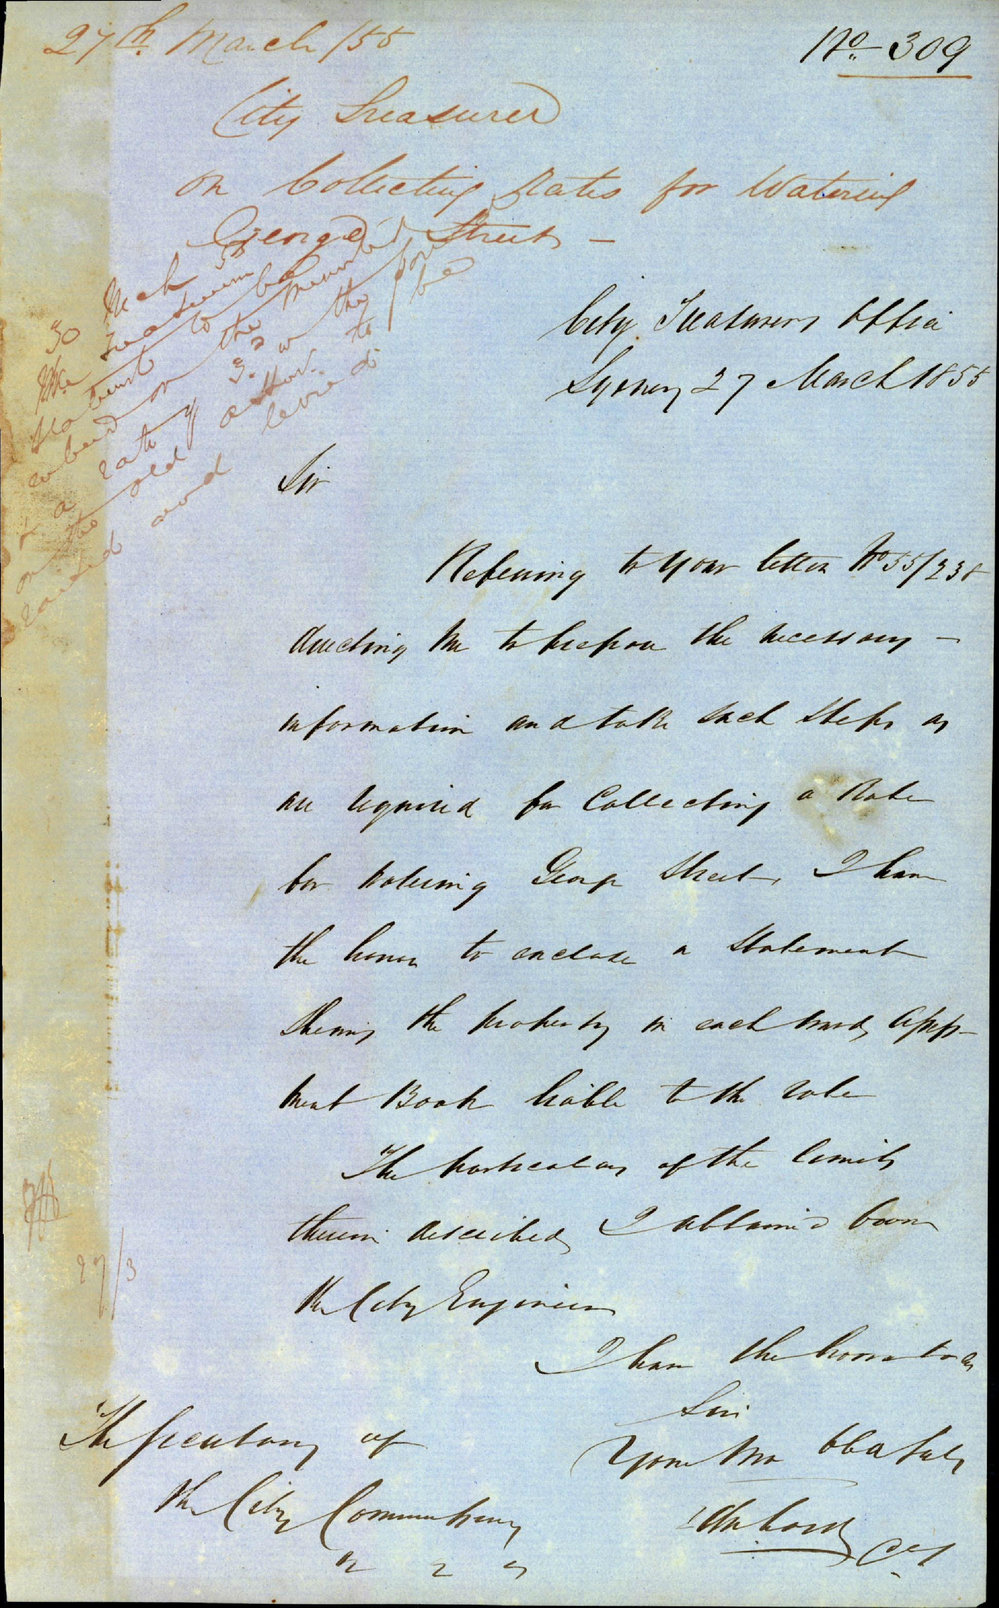 27th March /55
No. 309
City Treasurer
on Collecting Rates for Watering
George Street —
30 Mch 55
The Treasurers
Statement to be
on the
& a rate of 3d in the
on the old to be
and levied
City Treasurers Office
Sydney 27 March 1855
Sir
Referring to your letter No 55/238
directing me to prepare the necessary —
information and take such steps as
are required for Collecting a Rate
for watering George Street, I have
the honor to enclose a Statement
shewing the property in each ward,
ment Book liable to the rate
The particulars of the limits
therein described, I obtained from
the City Engineer
I have the honor to be
Sir
Your Mo Obt Servt
The Secretary of
the City Commissioners
27/3